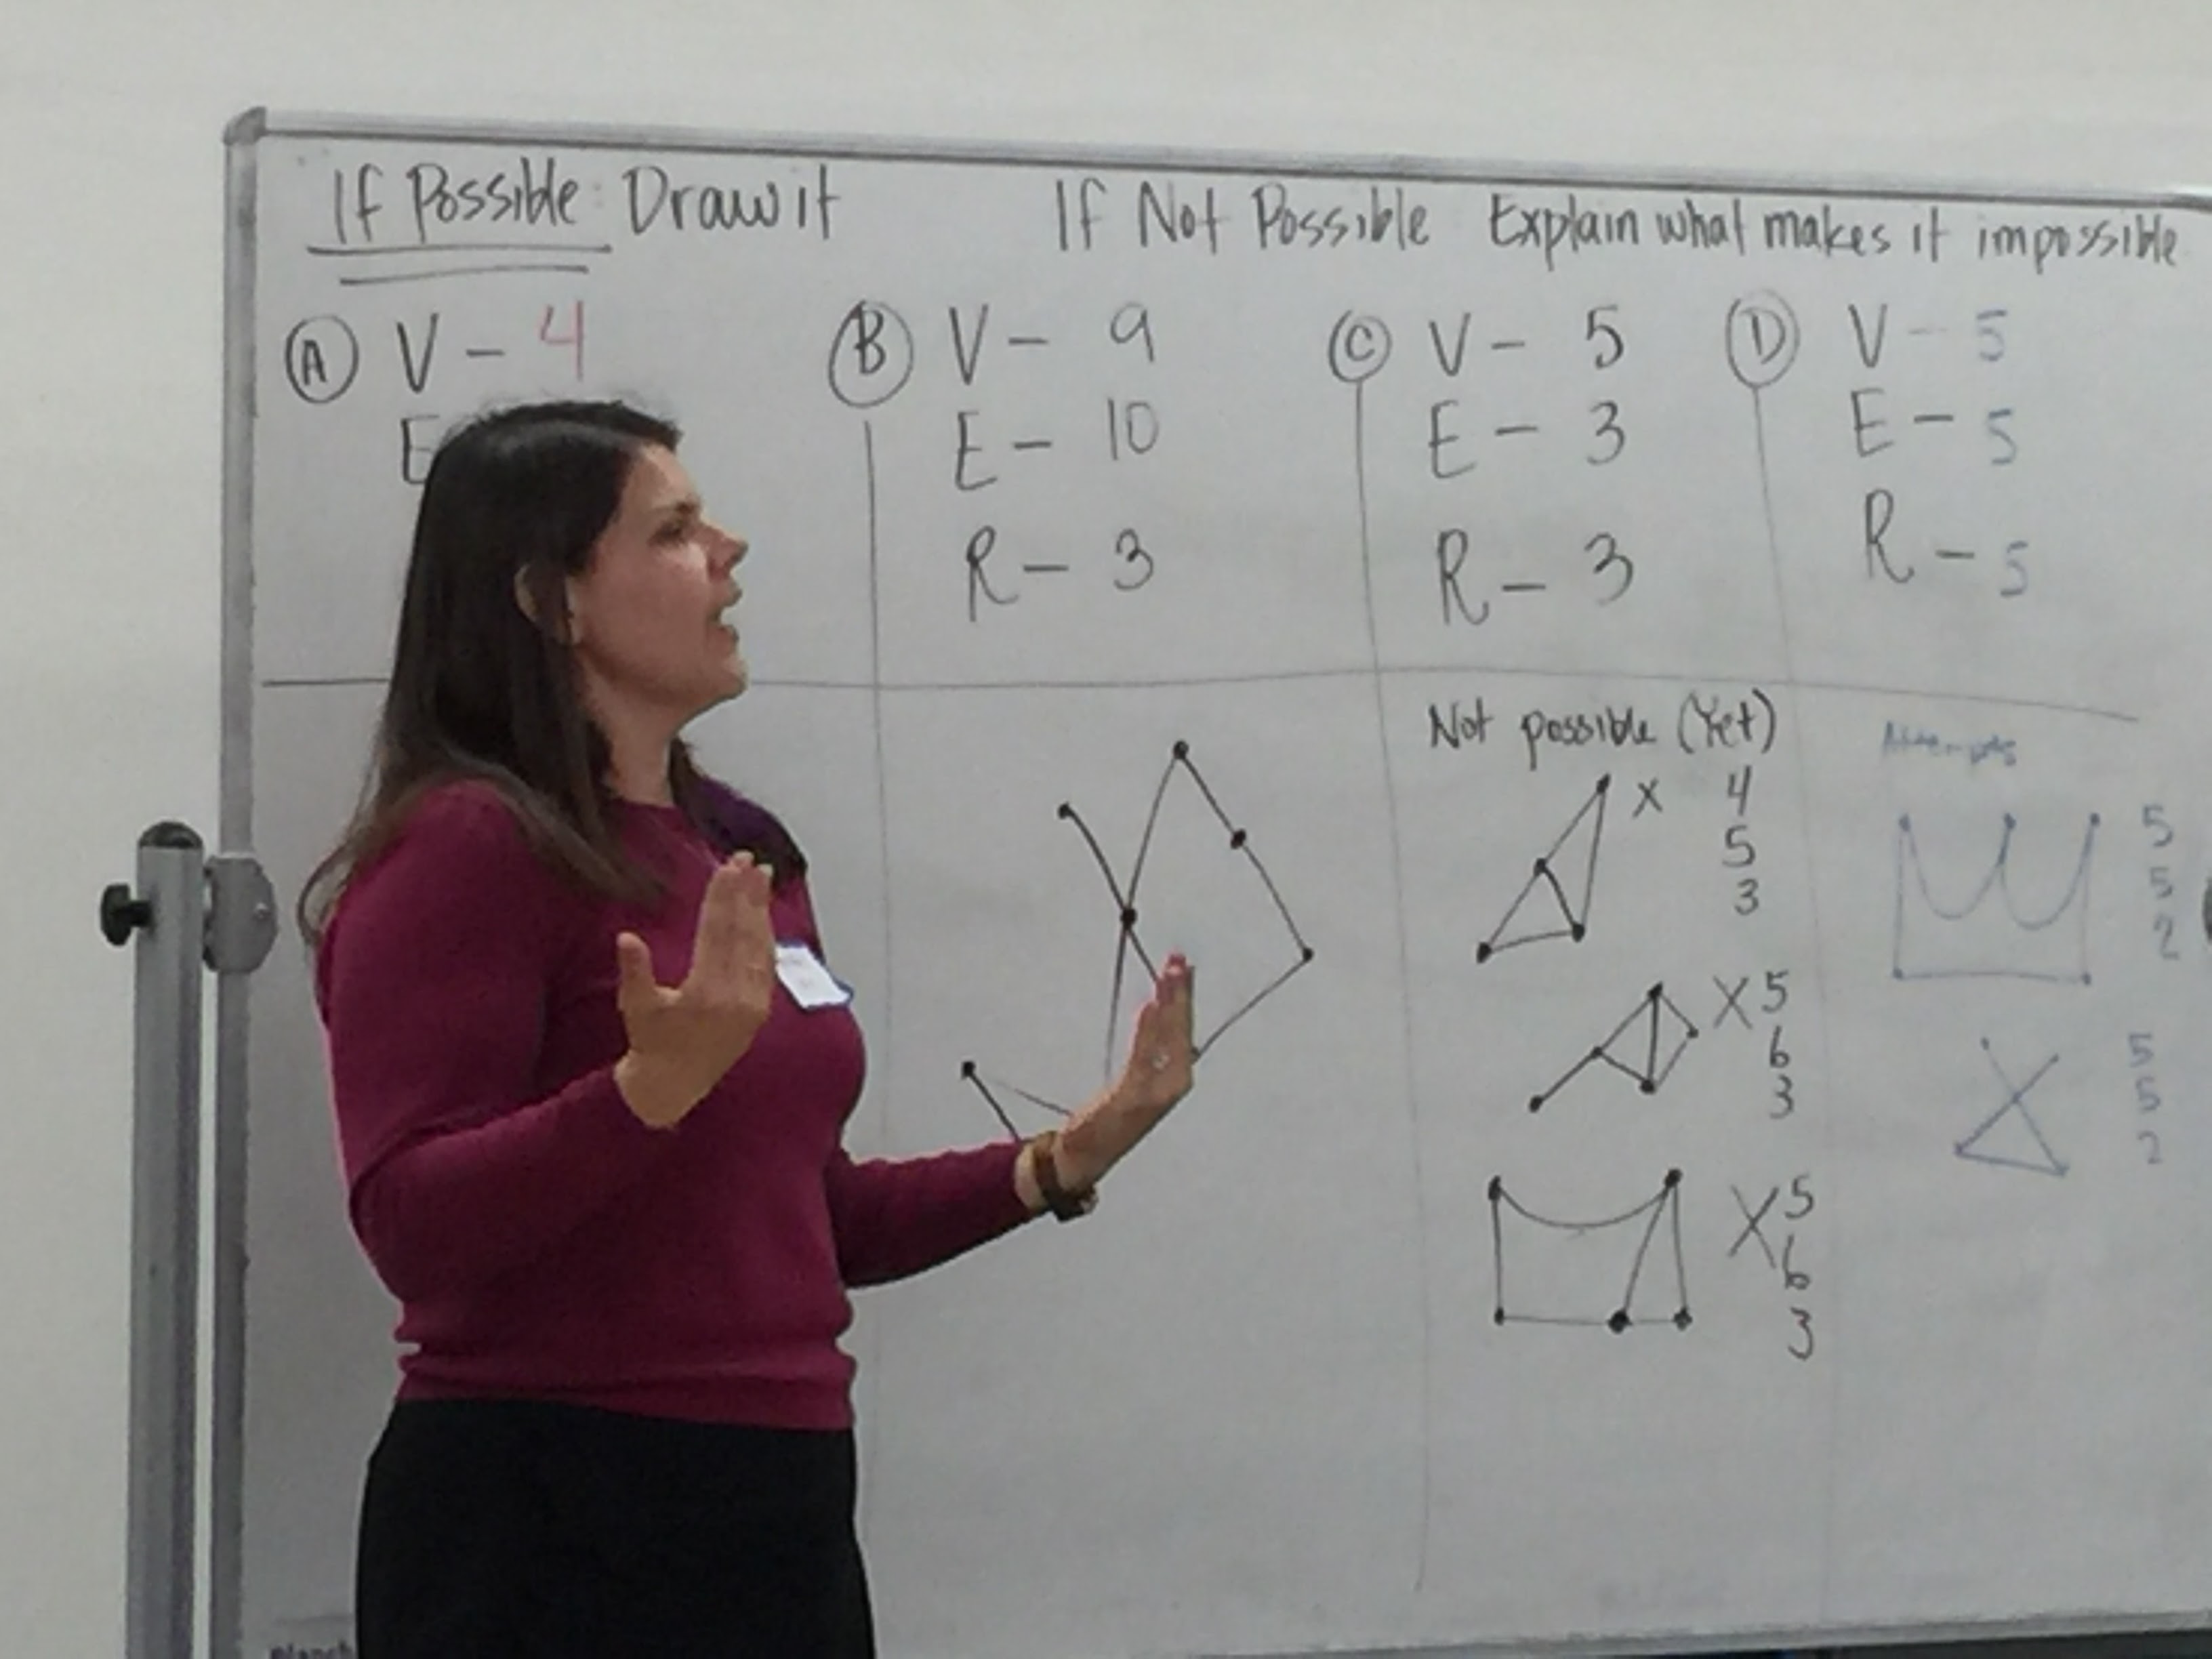 If Possible: Draw it
If Not Possible Explain what makes it impossible
A V - 4
E
B V - 9
E - 10
R - 3
C V - 5
E - 3
R - 3
D V - 5
E - 5
R - 5
Not possible (Yet)
X 4
5
3
X 5
6
3
X 5
6
3
Attempts
5
5
2
5
5
2